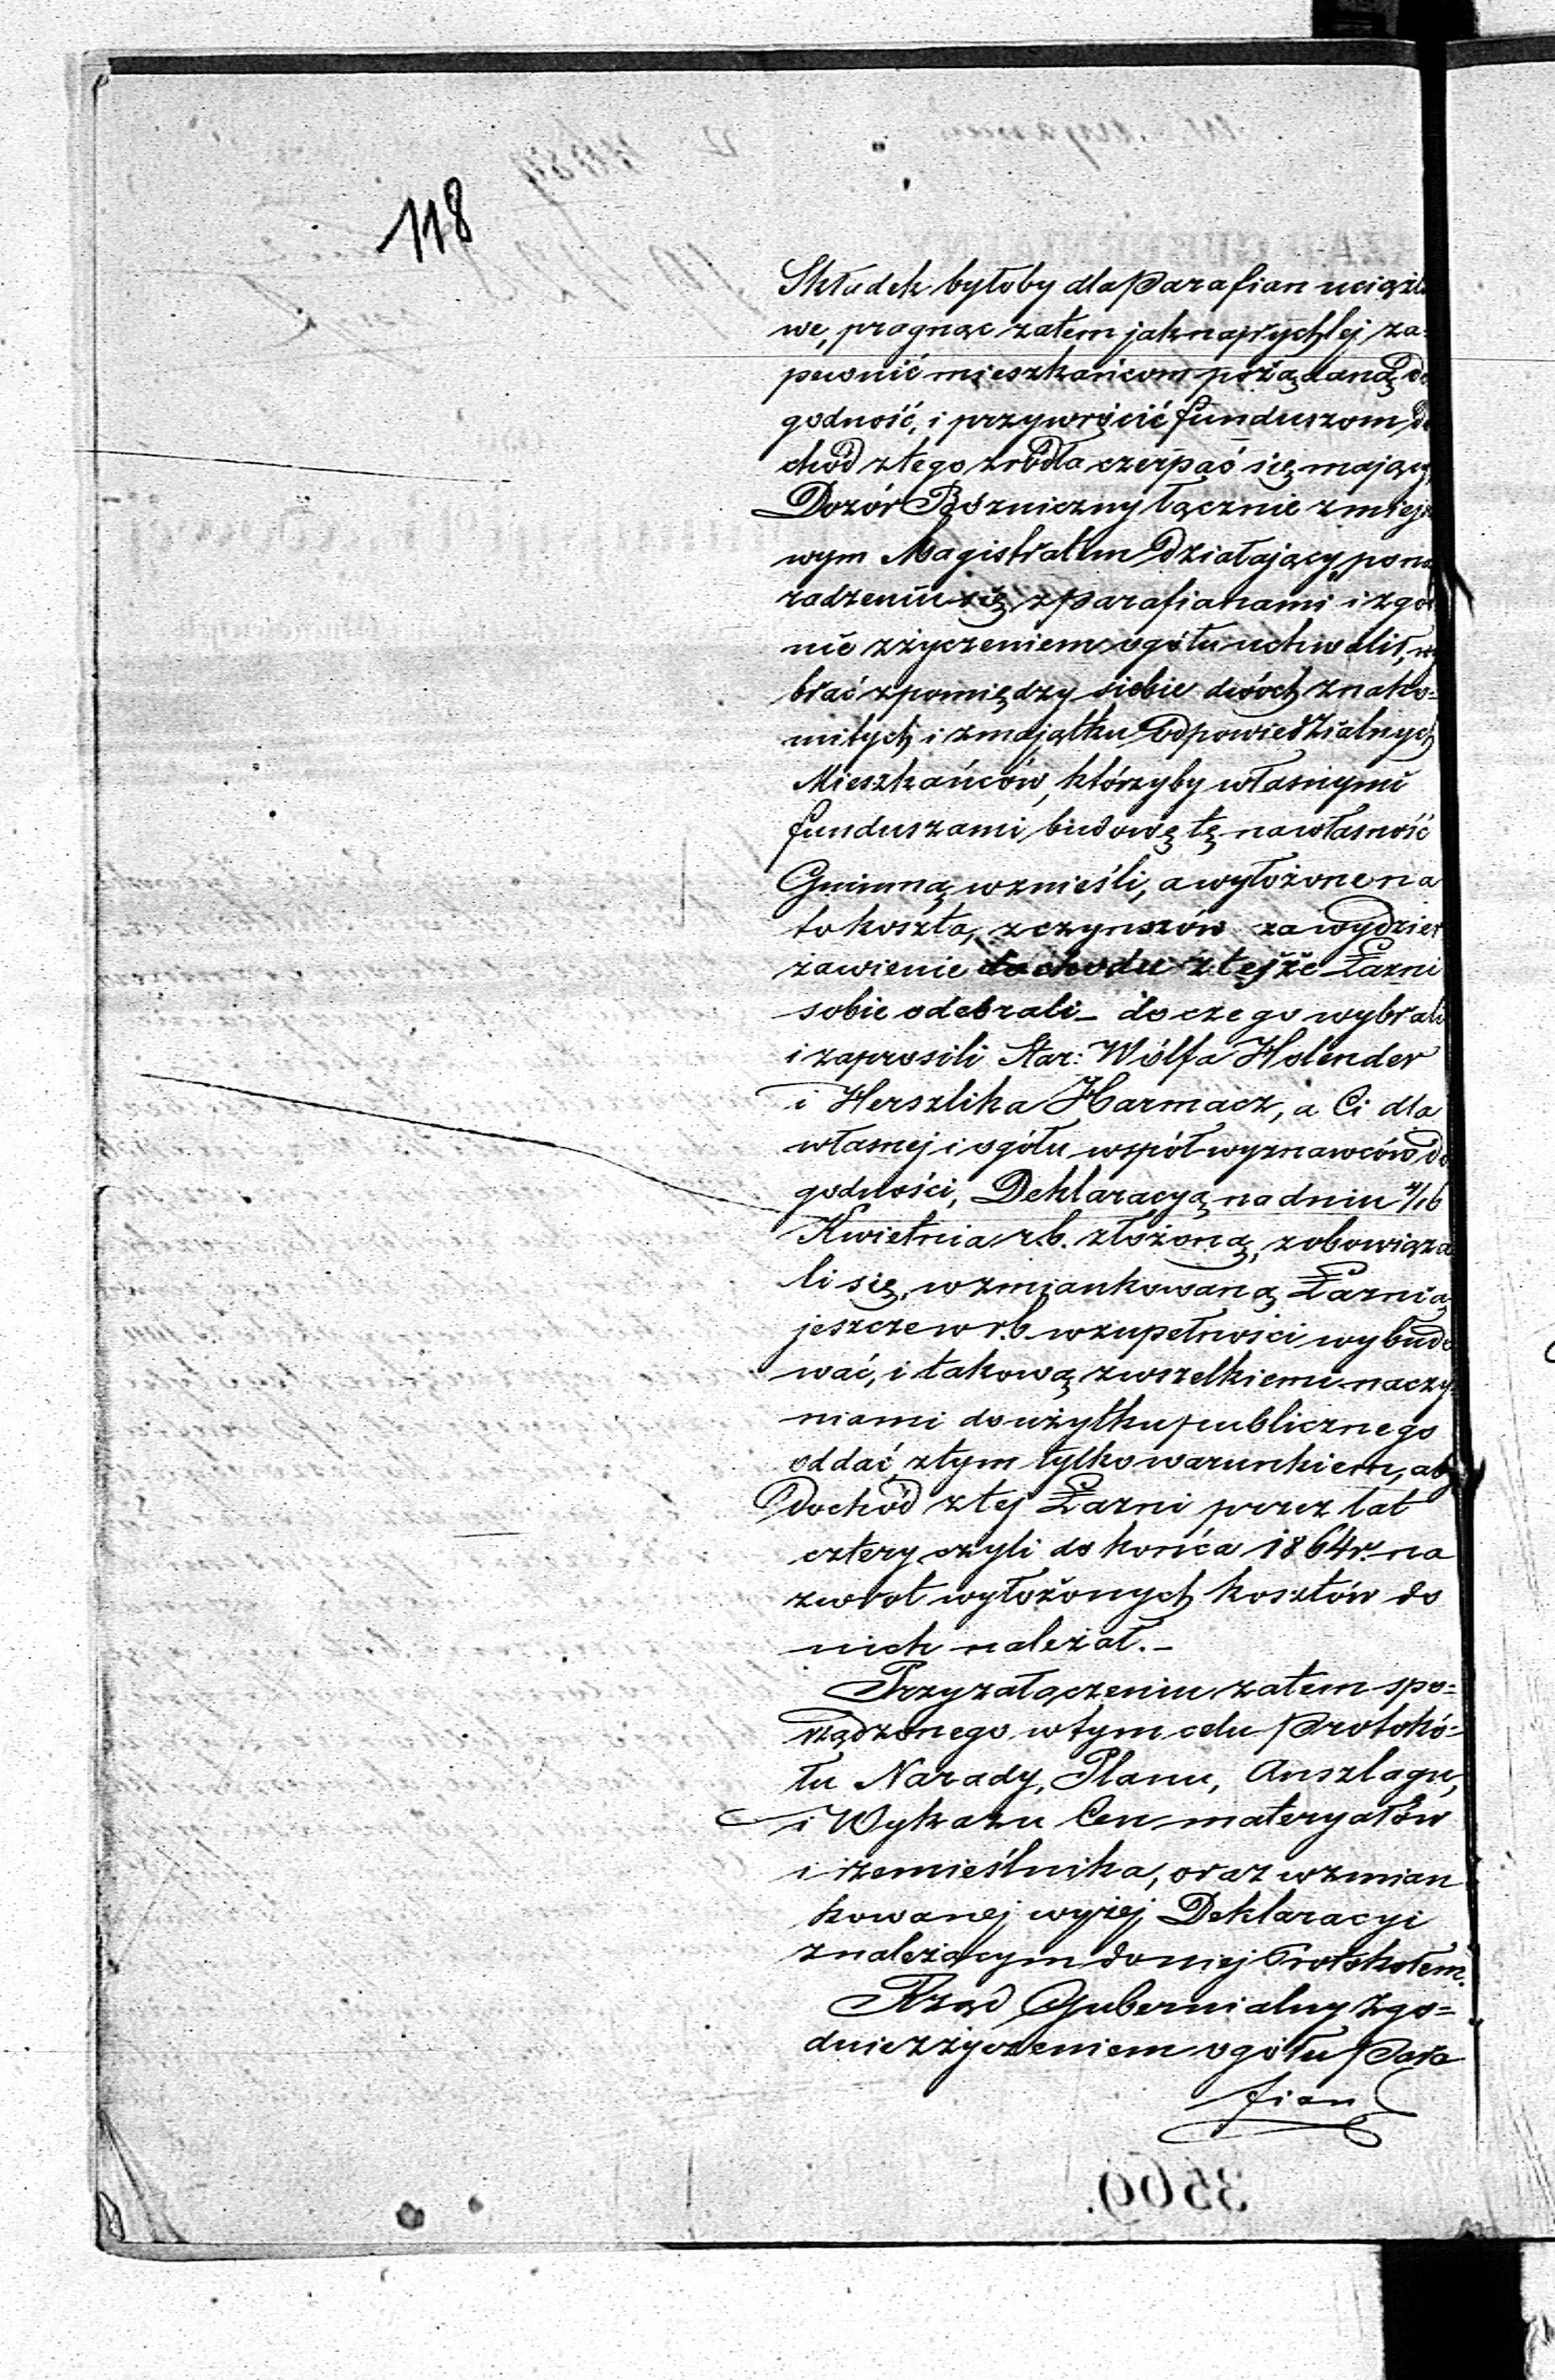 118
Składek byłoby dla Parafian uciążli
we, pragnąc zatem jaknaprychlej za=
pewnić mieszkańcom pożądaną do
godność, i przywrócić funduszom do
chód z tego źródła czerpać się mający,
Dozór Bóżniczny łącznie z miejs
wym Magistratem działający, po na
radzeniu się z Parafianami i zgod
nie z życzeniem ogółu uchwalił, wy
brać z pomiędzy siebie dwóch znako=
mitych i z majątku odpowiedzialnych
Mieszkańców, którzyby własnymi
funduszami budowę tę na własność
Gminną wznieśli, a wyłożone na
to koszta, z czynszów za wydzier
żawienie dochodu z tejże Łazni
sobie odebrali – do czego wybrali
i zaprosili Star: Wólfa Holender
i Herszlika Harmacz, a Ci dla
własnej i ogółu współwyznawców do
godności, Deklaracyą na dniu 4/16
Kwietnia r.b. złożoną, zobowiąza
li się, wzmiankowaną Łaznią
jeszcze w r.b. w zupełności wybudo
wać, i takową z wszelkiemi naczy
niami do użytku publicznego
oddać z tym tylko warunkiem, aby
Dochód z tej Łazni przez lat
cztery czyli do końca 1864 r. na
zwrot wyłożonych kosztów do
nich należał. –
Przy załączeniu zatem spo=
rządzonego w tym celu Protokó=
łu Narady, Planu, Anszlagu,
i Wykazu Cen materyałów
i rzemieślnika, oraz wzmian
kowanej wyżej Deklaracyi
z należącym do niej Protokołem.
Rząd Gubernialny zgo=
dnie z życzeniem ogółu Para
fian
3569.